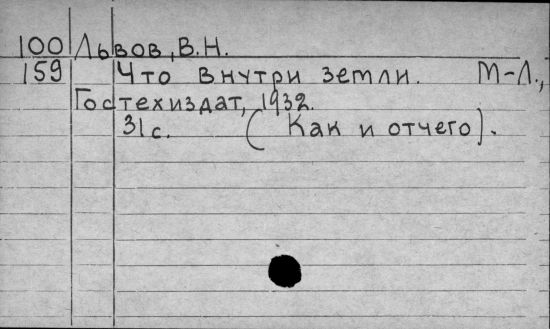 100 Львов, В.Н.
159 Что внутри земли. М-Л.,
Гостехиздат, 1932.
31 с. (Как и отчего).